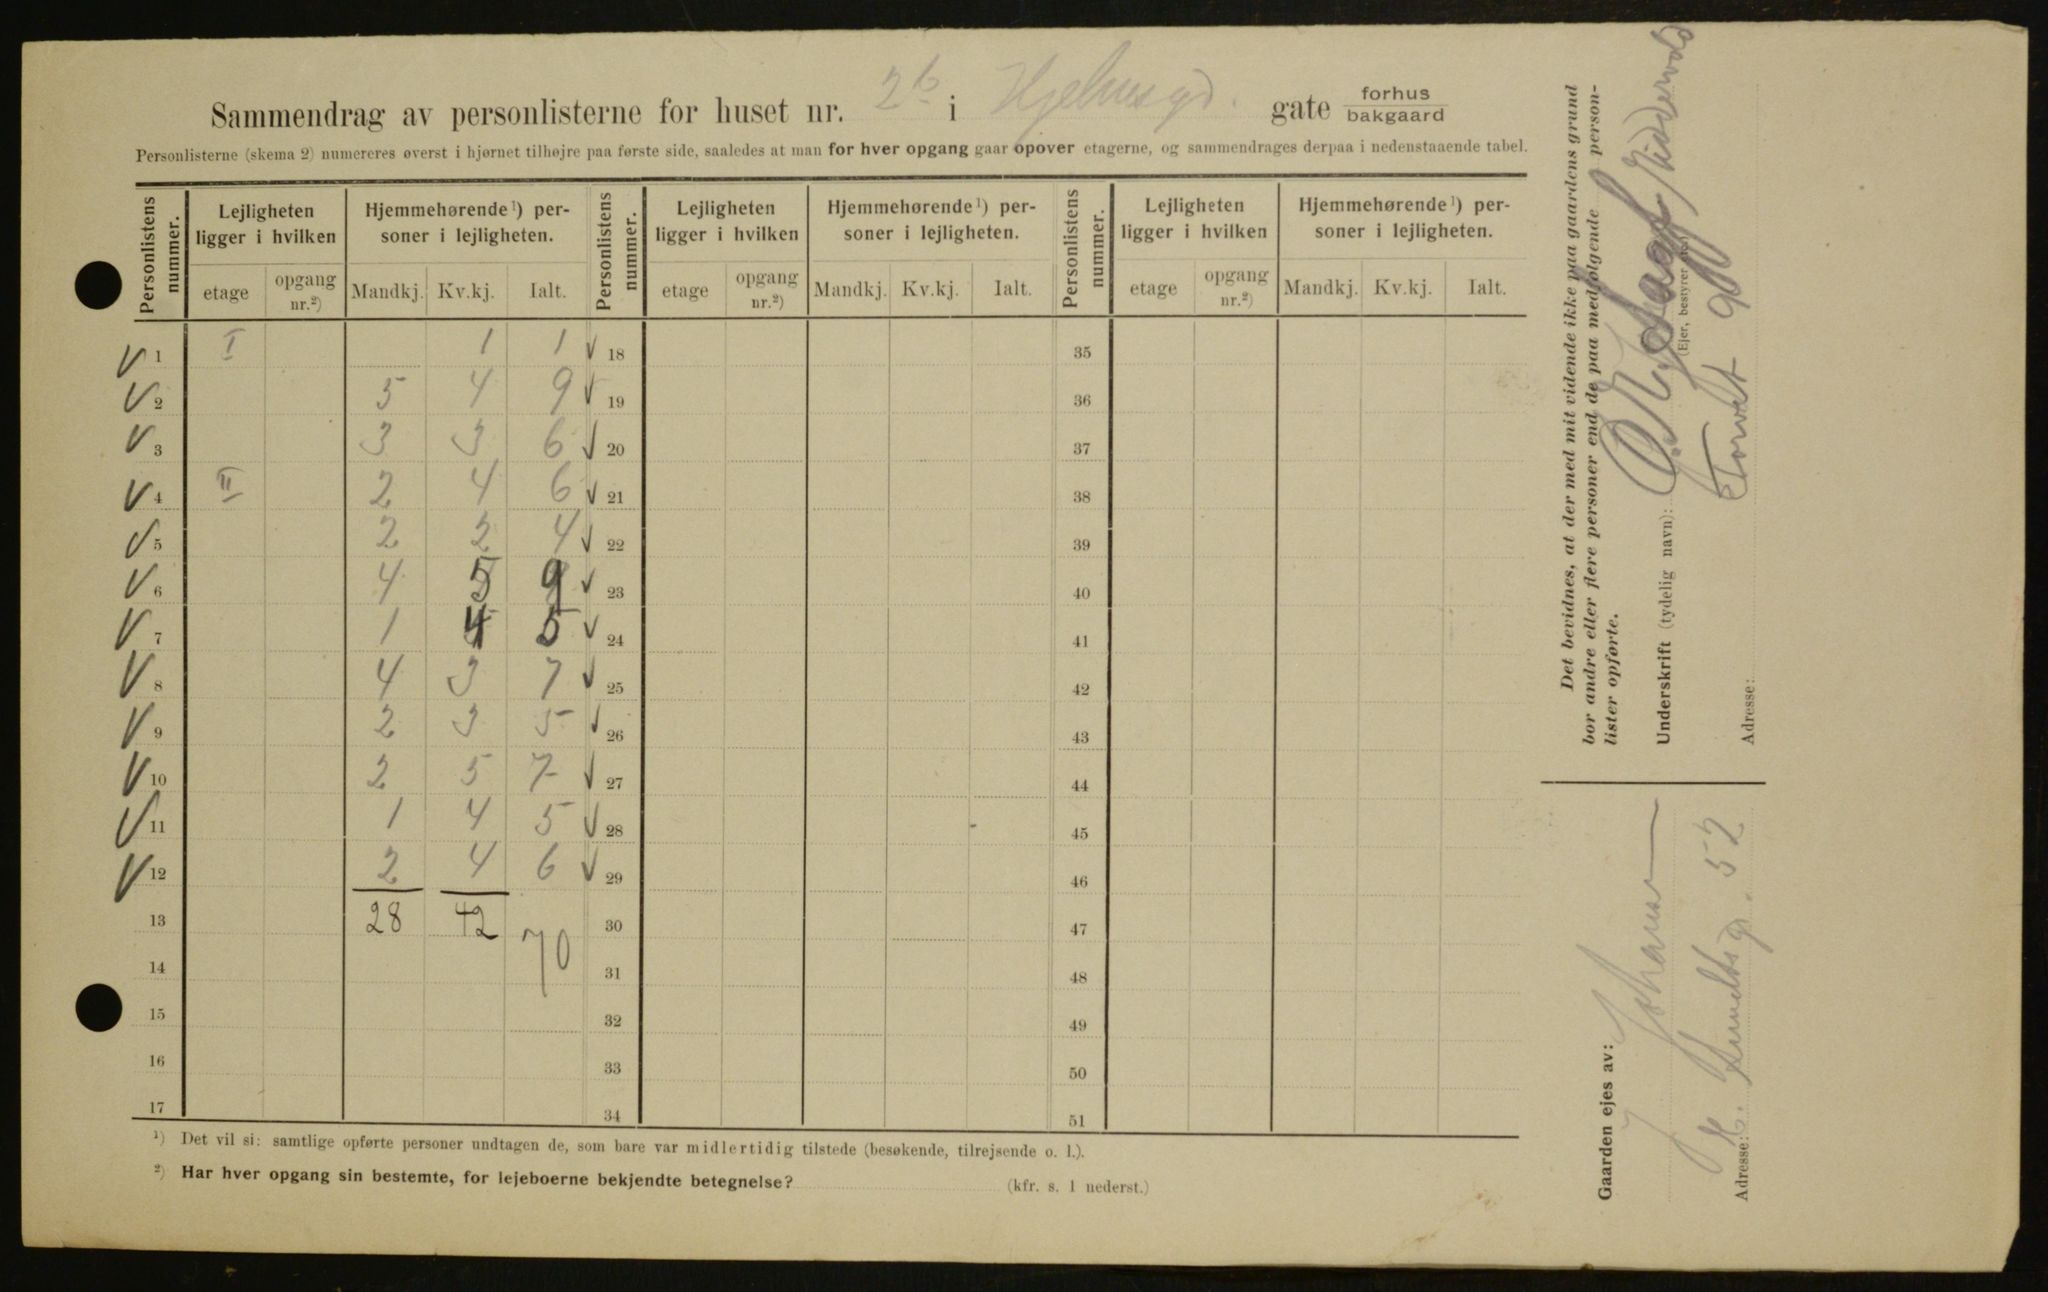 Sammendrag av personlisterne for huset nr. 2b i Hjelmsgd. gate forhus bakgaard
Personlisterne (skema 2) numereres øverst i hjørnet tilhøjre paa første side, saaledes at man for hver opgang gaar opover etagerne, og sammendrages derpaa i nedenstaaende tabel.
Personlistens nummer. Lejligheten ligger i hvilken Hjemmehørende¹) personer i lejligheten. Personlistens nummer. Lejligheten ligger i hvilken Hjemmehørende¹) personer i lejligheten. Personlistens nummer. Lejligheten ligger i hvilken Hjemmehørende¹) personer i lejligheten.
etage opgang nr.²) Mandkj. Kv.kj. Ialt. etage opgang nr.²) Mandkj. Kv.kj. Ialt. etage opgang nr.²) Mandkj. Kv.kj. Ialt.
√ 1 I 1 1 √ 18 35
√ 2 5 4 9 √ 19 36
√ 3 3 3 6 √ 20 37
√ 4 II 2 4 6 √ 21 38
√ 5 2 2 4 √ 22 39
√ 6 4 5 9 √ 23 40
√ 7 1 4 5 √ 24 41
√ 8 4 3 7 √ 25 42
√ 9 2 3 5 √ 26 43
√ 10 2 5 7 √ 27 44
√ 11 1 4 5 √ 28 45
√ 12 2 4 6 √ 29 46
13 28 42 70 30 47
14 31 48
15 32 49
16 33 50
17 34 51
¹) Det vil si: samtlige opførte personer undtagen de, som bare var midlertidig tilstede (besøkende, tilrejsende o. l.).
²) Har hver opgang sin bestemte, for lejeboerne bekjendte betegnelse? (kfr. s. 1 nederst.)
Det bevidnes, at der med mit vidende ikke paa gaardens grund
bor andre eller flere personer end de paa medfølgende personlister opførte.
Underskrift (tydelig navn):
(Ejer, bestyrer etc.)
Adresse: Torvet 9
Gaarden ejes av: Johansen
Adresse: 52